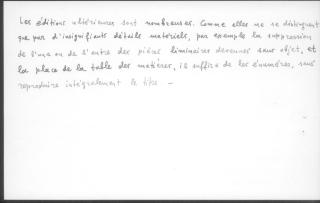 Les éditions ultérieures sont nombreuses. Comme elles ne se distinguent
que par d'insignifiants détails matériels, par exemple la suppression
de l'une ou de l'autre des pièces liminaires devenues sans objet, et
la place de la table des matières, il suffira de les énumérer, sans
reproduire intégralement le titre —